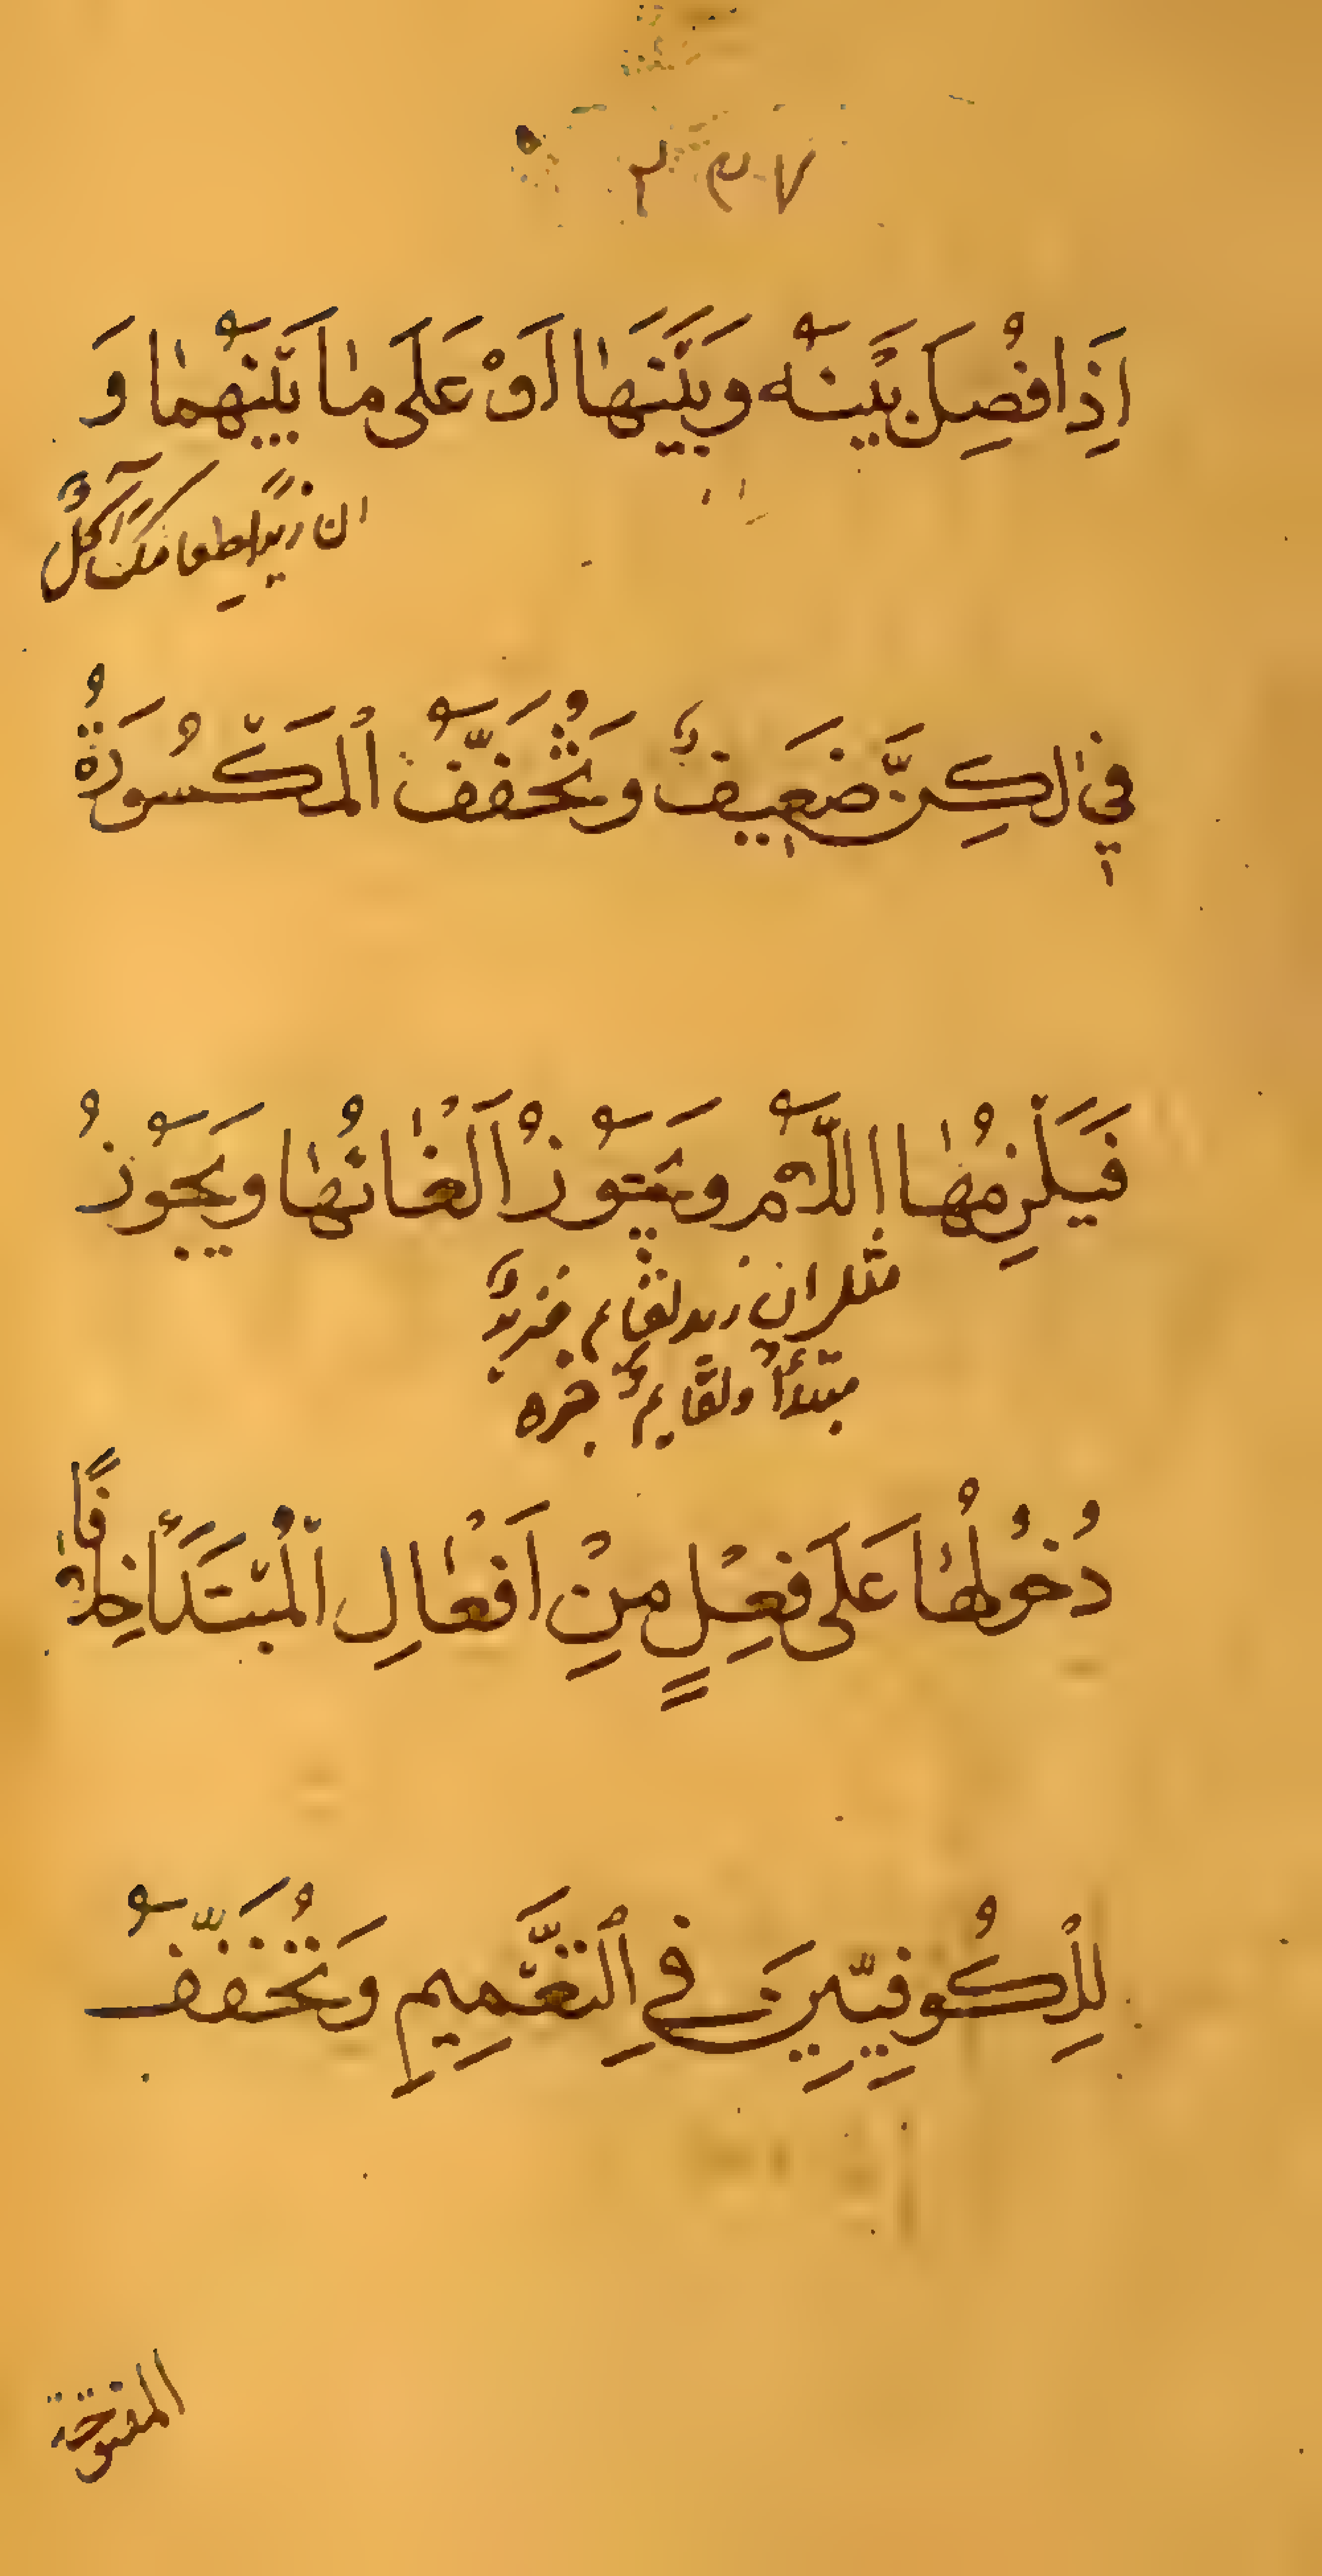 ٢٣٧
اِذَا فُصِلَ بَيْنَهُ وَبَيْنَهَا اَوْ عَلَى مَا بَيْنَهُمَا وَ
ان زيدًا لطعامك آكلٌ
فِي لٰكِنَّ ضَعِيفٌ وَتُخَفَّفُ الْمَكْسُورَةُ
فَيَلْزِمُهَا اللَّامُ وَيَجُوزُ اِلْغَاؤُهَا وَيَجُوزُ
مثل ان زيد لقايم فزيدٌ
مبتدأ ولقايمٌ خبره
دُخُولُهَا عَلَى فِعْلٍ مِنْ اَفْعَالِ الْمُبْتَدَأِ خِلَافًا
لِلْكُوفِيِّينَ فِي التَّعْمِيمِ وَتُخَفَّفُ
المفتوحة